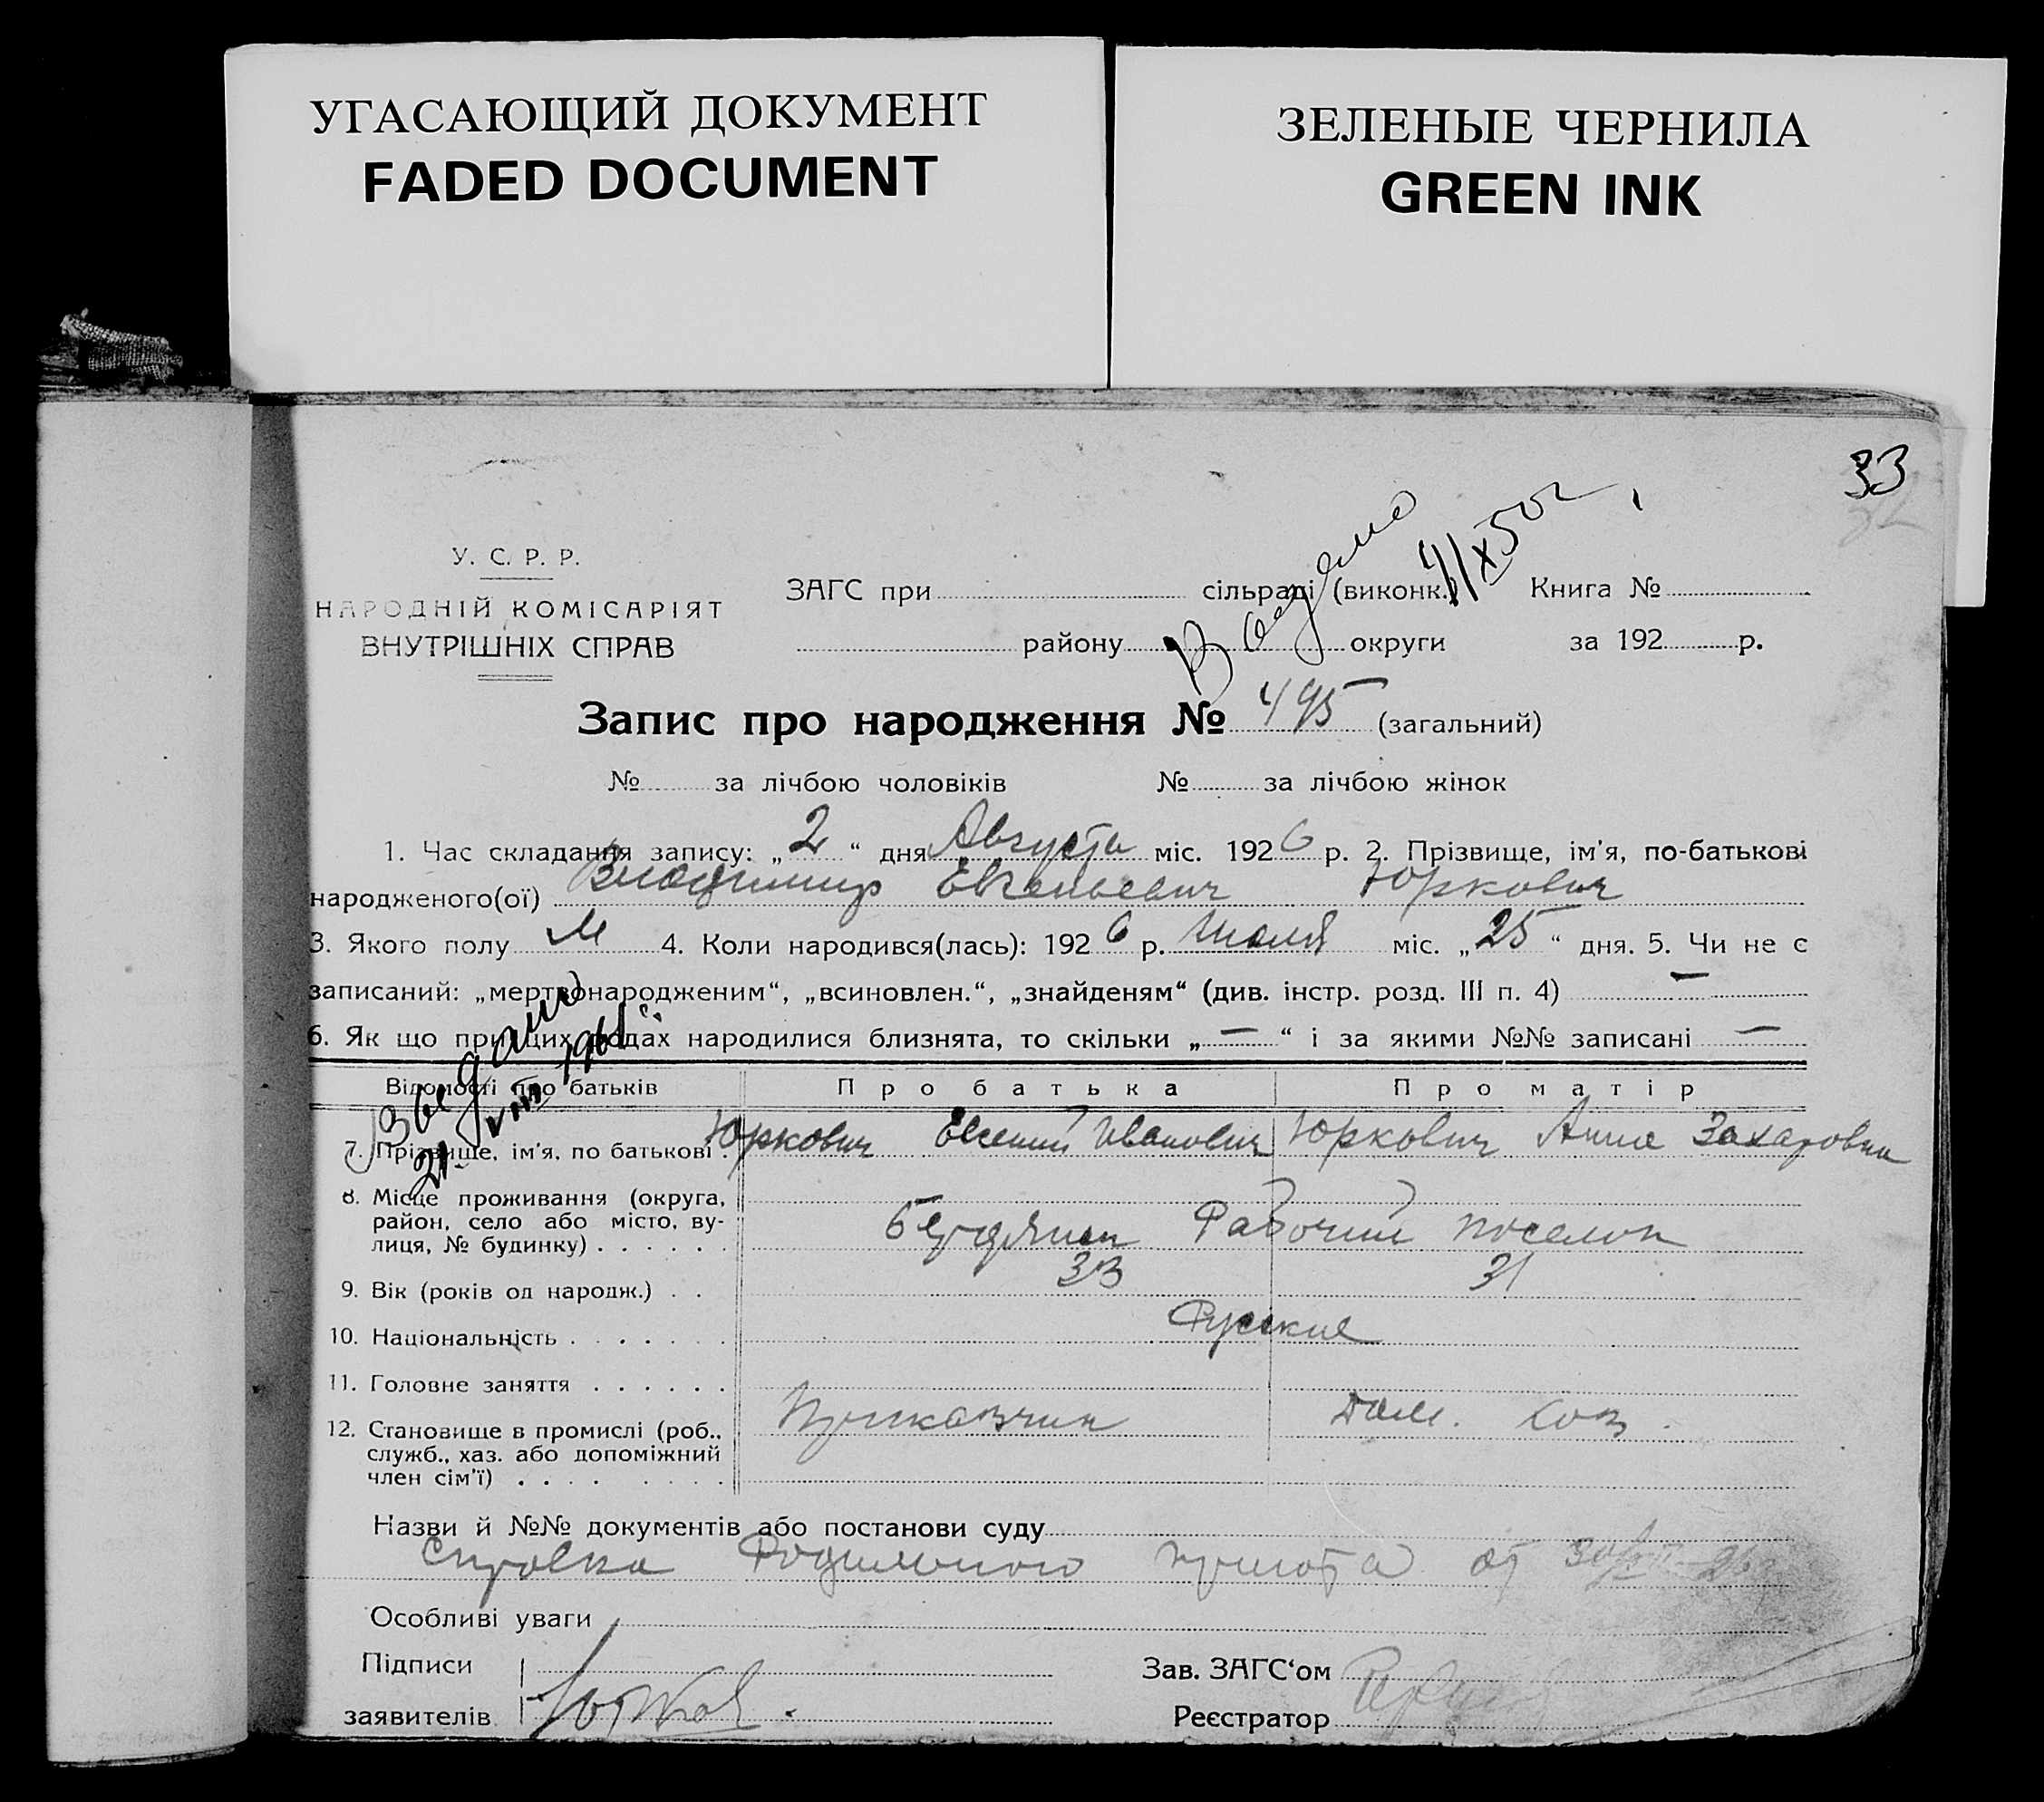 УГАСАЮЩИЙ ДОКУМЕНТ
FADED DOCUMENT
ЗЕЛЕНЫЕ ЧЕРНИЛА
GREEN INK
33
У. С. Р. Р.
НАРОДНІЙ КОМІСАРІЯТ
ВНУТРІШНІХ СПРАВ
ЗАГС при сільраді (виконк.) Книга №
району округи за 192 р.
Запис про народження № 495 (загальний)
№ за лічбою чоловіків № за лічбою жінок
1. Час складання запису: „2“ дня Августа міс. 1926 р. 2. Прізвище, ім'я, по-батькові
народженого(ої) Владимир Евгеньевич Юркович
3. Якого полу М 4. Коли народився(лась): 1926 р. Июля міс. „25“ дня. 5. Чи не є
записаний: „мертвонародженим“, „всиновлен.“, „знайденям“ (див. інстр. розд. III п. 4) —
6. Як що при цих родах народилися близнята, то скільки „—“ і за якими №№ записані —
Відомості про батьків Про батька Про матір
7. Прізвище, ім'я, по батькові . Юркович Евгений Иванович Юркович Анна Захаровна
8. Місце проживання (округа,
район, село або місто, ву-
лиця, № будинку) . . . . . . Бердянск Рабочий поселок
9. Вік (років од народж.) . . 33 31
10. Національність . . . . . . . Русские
11. Головне заняття . . . . . .
12. Становище в промислі (роб.,
служб., хаз. або допоміжний
член сім'ї) . . . . . . . . Приказчик Дом. хоз.
Назви й №№ документів або постанови суду
Справка Родильного приюта от
Особливі уваги
Підписи
заявителів
Зав. ЗАГС'ом
Реєстратор